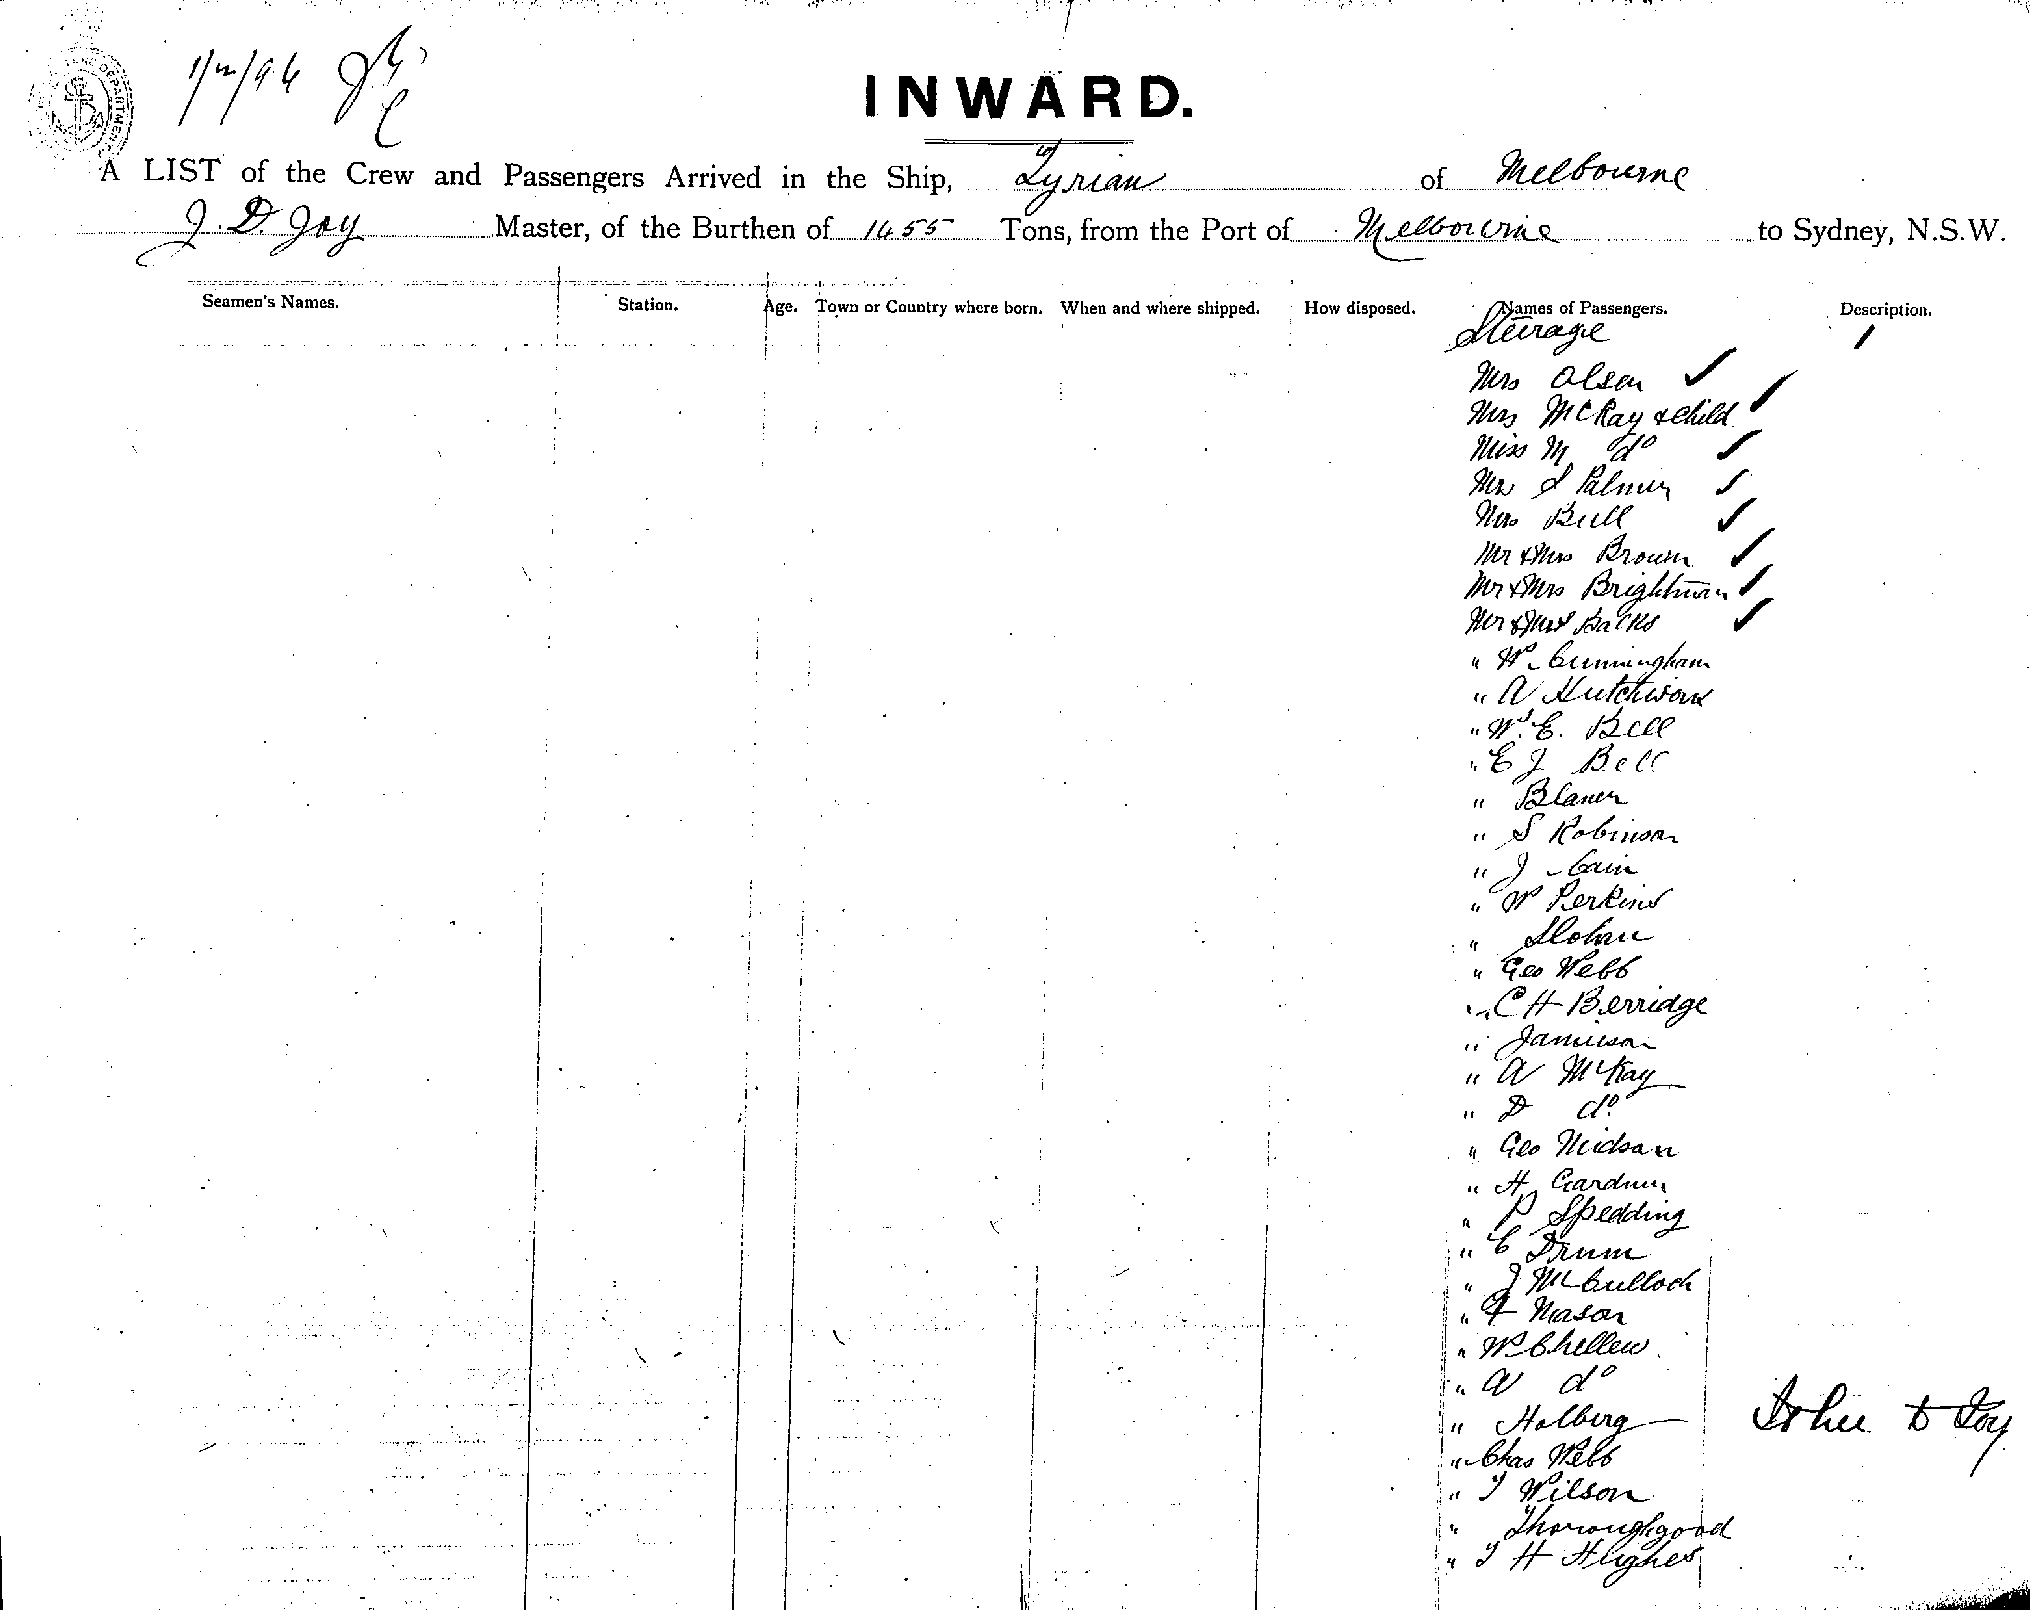 1/12/96
INWARD.
A LIST of the Crew and Passengers Arrived in the Ship, Tyrian of Melbourne
J. D. Joy Master, of the Burthen of 1455 Tons, from the Port of Melbourne to Sydney, N.S.W.
Seamen's Names. Station. Age. Town or Country where born. When and where shipped. How disposed. Names of Passengers. Description.
Steerage
Mrs Olsen
Mrs McKay & child
Miss M do
Mrs S Palmer
Mrs Bull
Mr & Mrs Brown
Mr & Mrs Brightman
Mr & Mrs Backs
" W. Cunningham
" A Hutchison
" W. E. Bell
" E J Bell
" Blaner
" S Robinson
" J Cain
" W Perkins
"
" Geo Webb
" C H Berridge
" Jamieson
" A McKay
" D do
" Geo
" H Gardner
" P Spedding
" C Drum
" J McCulloch
" F Mason
" W Chellew
" A do
" Holberg
" Chas Webb
" T Wilson
" Thoroughgood
" T H Hughes
John D Joy